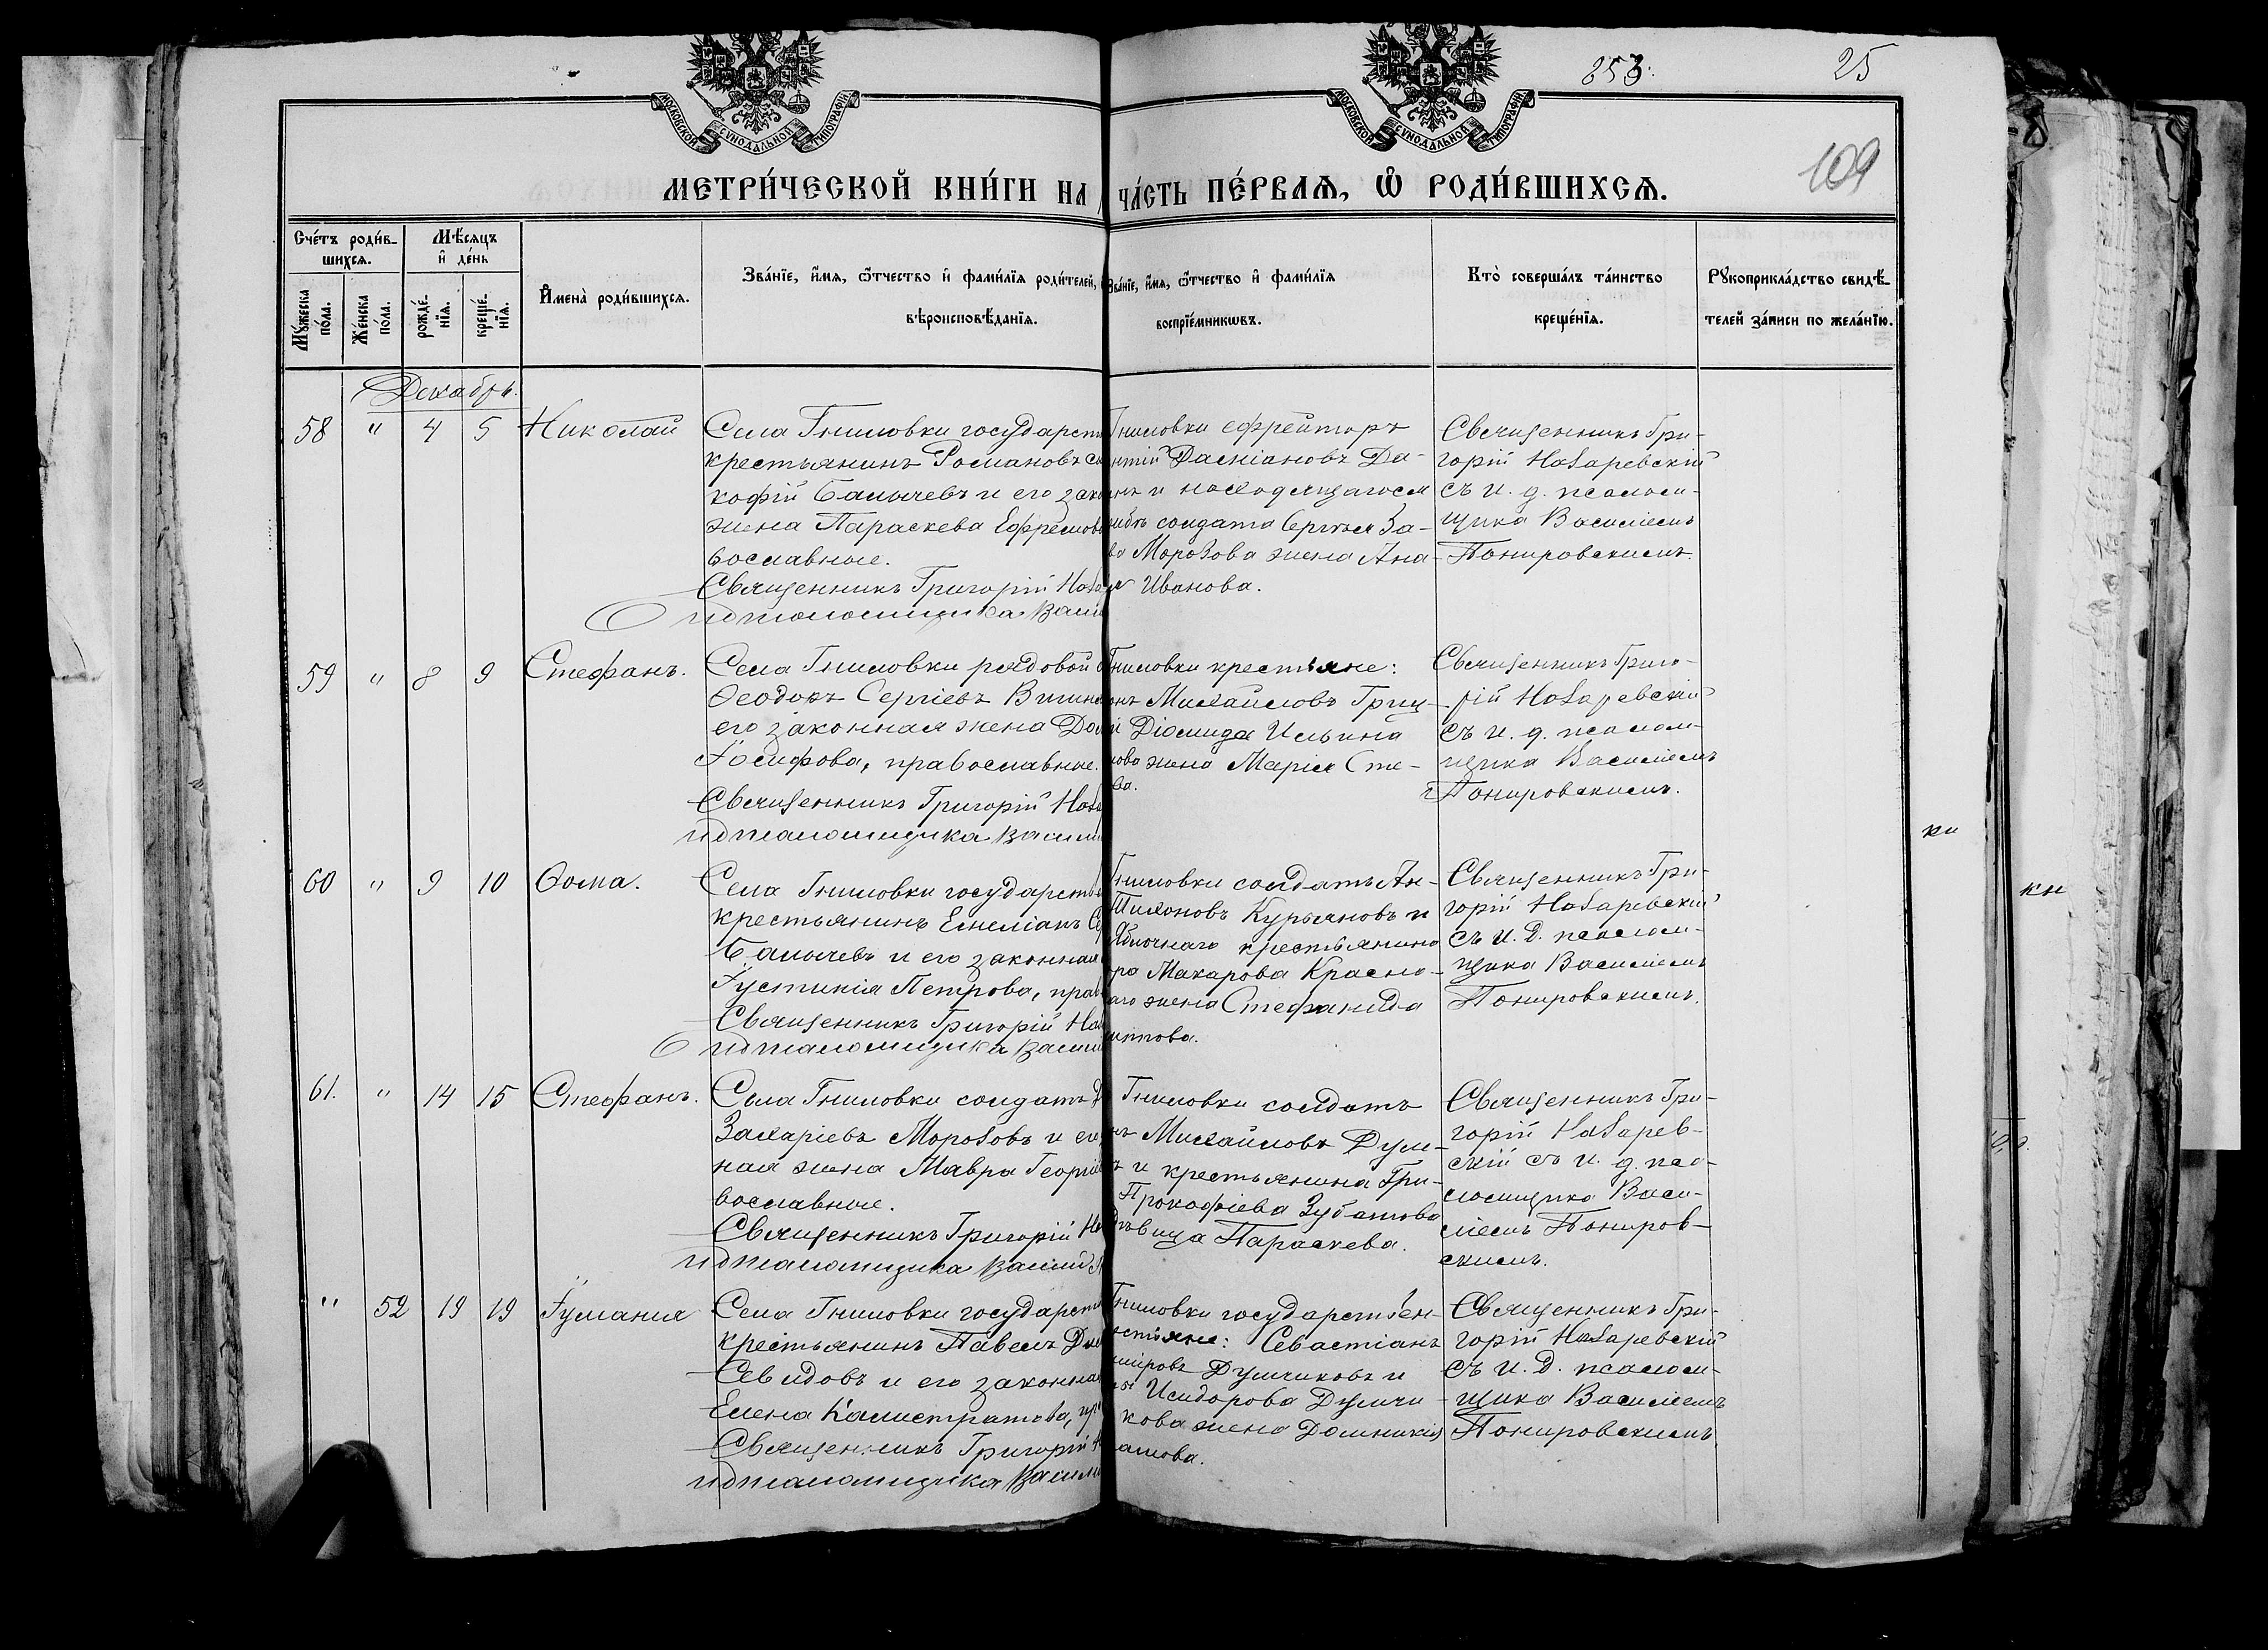 853.
25
109
МОСКОВСКОЙ СѴНОДАЛЬНОЙ ТИПОГРАФІИ
МОСКОВСКОЙ СѴНОДАЛЬНОЙ ТИПОГРАФІИ
МЕТРИ́ЧЕСКОЙ КНИ́ГИ НА
ЧА́СТЬ ПЕ́РВАЯ, Ѡ РОДИ́ВШИХСЯ.
Сче́тъ роди́в-
шихся.
Мѣ́сяцъ
и́ де́нь
Мꙋ́жеска
по́ла.
Же́нска
по́ла.
рожде́-
нїя.
креще́-
нїя.
И҆мена̀ роди́вшихся.
Зва́нїе, и҆́мя, ѻ҆́тчество и҆ фами́лїя роди́телей,
вѣроисповѣ́данїя.
Зва́нїе, и҆́мя, ѻ҆́тчество и҆ фами́лїя
воспрїе́мникѡвъ.
Кто̀ соверша́лъ та́инство
креще́нїя.
Рꙋкоприкла́дство свидѣ́-
телей за́писи по жела́нїю.
Декабрь.
58 " 4 5 Николай
Села Гниловки государств
крестьянинъ Романовъ
кофій Балычевъ и его зако
жена Параскева Ефремов
вославные.
Священникъ Григорій Наза
Гниловки ефрейторъ
нтій Даміановъ Да-
и находящагося
солдата Сергѣя За-
Морозова жена Ана-
Иванова.
Священникъ Гри-
горій Назаревскій
съ и. д. псалом-
щика Василіемъ
Понировскимъ.
59 " 8 9 Стефанъ.
Села Гниловки рядовой
Ѳеодоръ Сергіевъ
его законная жена
Іосифова, православные.
Священникъ Григорій Наза
и д псаломщика Васил
Гниловки крестьяне:
Михайловъ Гриц-
Діомида Ильина
кова жена Марія Сте-
ва.
Священникъ Григо-
рій Назаревскій
съ и. д. псалом-
щика Василіемъ
Понировскимъ.
60 " 9 10 Ѳома.
Села Гниловки государств
крестьянинъ Емиліанъ
Балычевъ и его законная
Іустинія Петрова, прав
Священникъ Григорій Наз
и д псаломщика Васил
Гниловки солдатъ Ан-
Тихоновъ Курьяновъ и
Яблочнаго крестьянина
ра Макарова Красно-
аго жена Стефанида
Священникъ Гри-
горій Назаревскій
съ и. д. псалом-
щика Василіемъ
Понировскимъ.
61. " 14 15 Стефанъ.
Села Гниловки солдатъ
Захаріевъ Морозовъ и его
ная жена Мавра Георгіе
вославные.
Священникъ Григорій На
и д псаломщика Васил
Гниловки солдатъ
Михайловъ Дум-
и крестьянина Гри-
Прокофіева Зубатова
дѣвица Параскева.
Священникъ Гри-
горій Назарев-
скій съ и. д. пса-
ломщика Васи-
ліемъ Пониров-
скимъ.
" 52 19 19 Іуліанія
Села Гниловки государств
крестьянинъ Павелъ
Севидовъ и его законная
Елена Калистратова, пр
Священникъ Григорій
и д псаломщика Васил
Гниловки государствен-
естьяне: Севастіанъ
Думчиковъ и
Исидорова Думчи-
кова жена Домникія
Священникъ Гри-
горій Назаревскій
съ и. д. псалом-
щика Василіемъ
Понировскимъ.